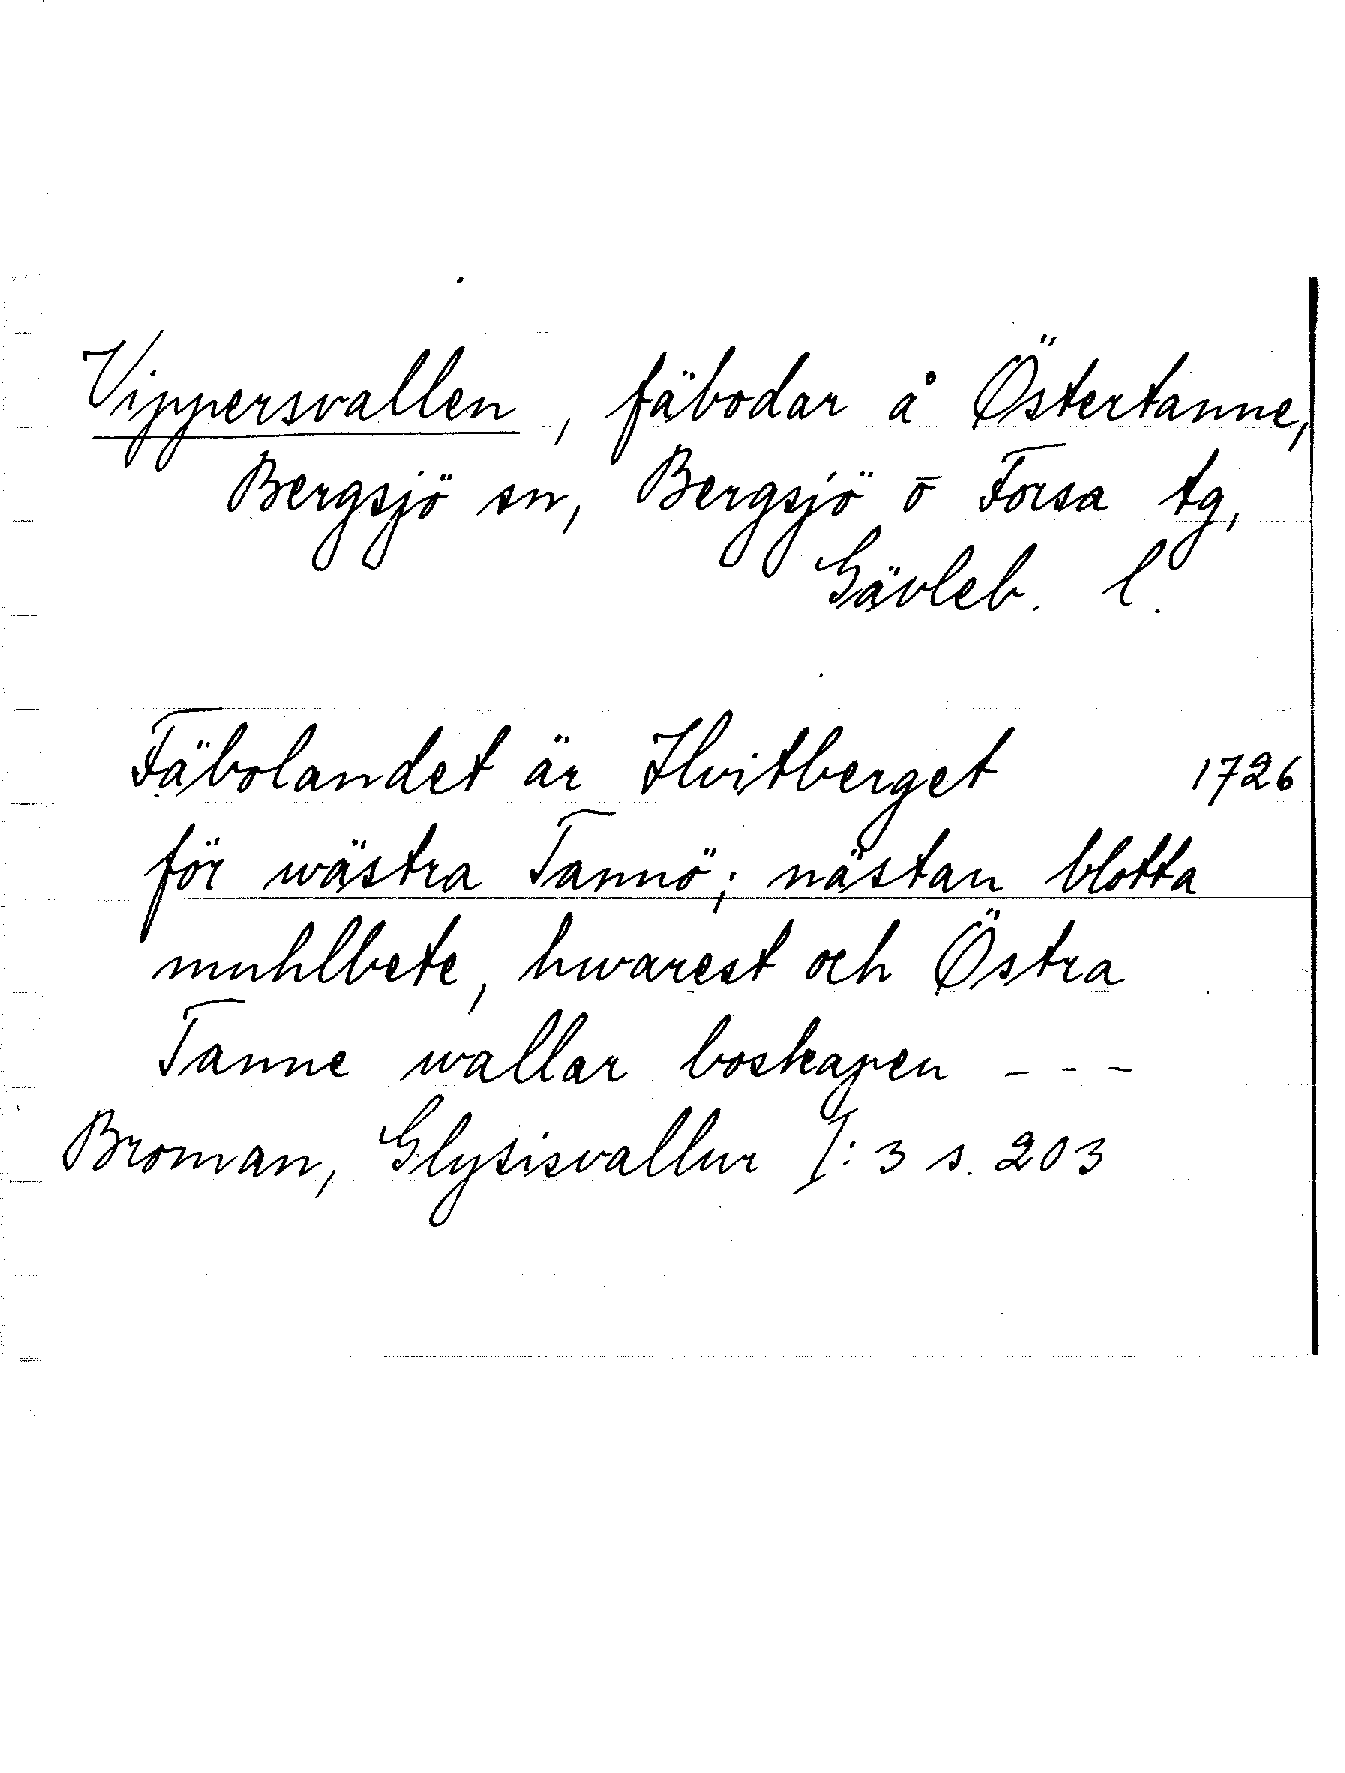 Vippersvallen, fäbodar å Östertanne,
Bergsjö sn, Bergsjö o Forsa tg,
Gävleb. l.
Fäbolandet är Hvitberget 1726
för wästra Tannö; nästan blotta
muhlbete, hwarest och Östra
Tanne wallar boskapen - - -
Broman, Glysisvallur I: 3 s. 203